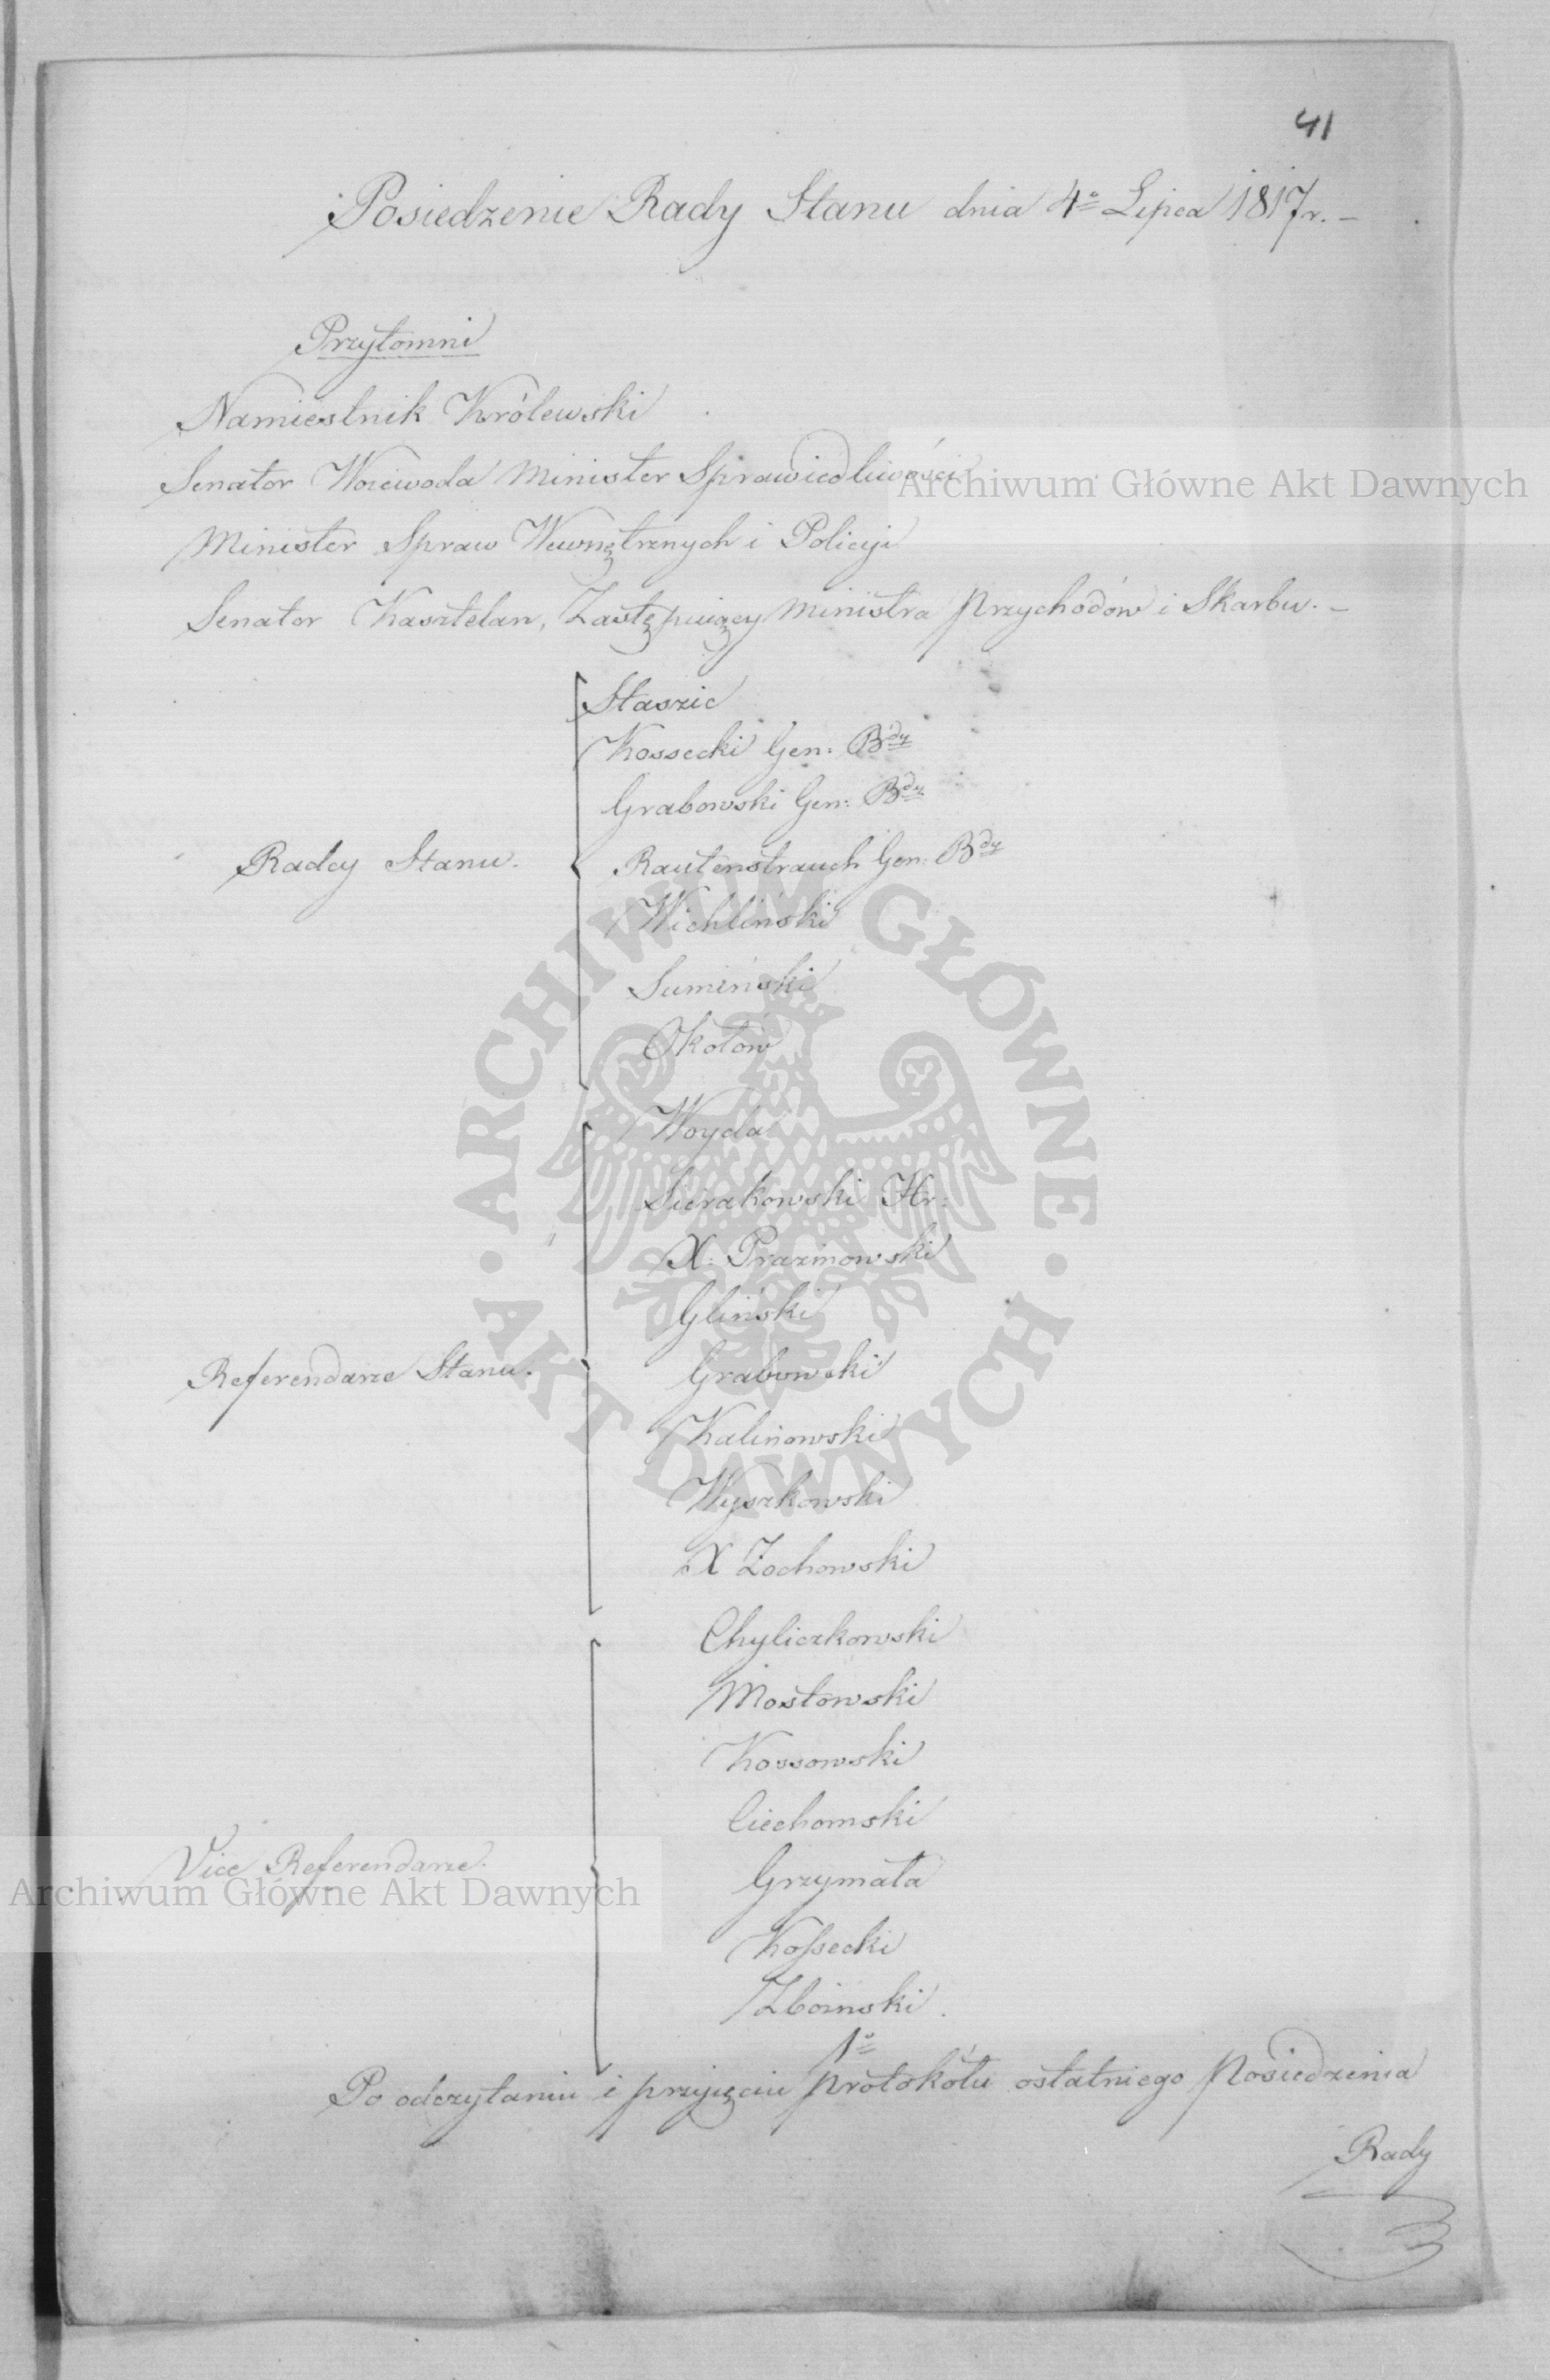 41
Posiedzenie Rady Stanu dnia 4º Lipca 1817r. –
Przytomni
Namiestnik Królewski
Senator Woiewoda Minister Sprawiedliwości
Archiwum Główne Akt Dawnych
Minister Spraw Wewnętrznych i Policyi
Senator Kasztelan, Zastępuiący Ministra Przychodów i Skarbu. –
Staszic
Kossecki Gen: Bdy
Grabowski Gen: Bdy
Radcy Stanu.
Rautenstrauch Gen: Bdy
Wichliński
Sumiński
Okołow
ARCHIWUM GŁÓWNE AKT DAWNYCH
Woyda
Sierakowski Hr:
X: Prazmowski
Gliński
Referendarze Stanu.
Grabowski
Kalinowski
Wyszkowski
X Żochowski
Chyliczkowski
Mostowski
Kossowski
Ciechomski
Vice Referendarze.
Grzymała
Archiwum Główne Akt Dawnych
Kossecki
Zboinski.
1º
Po odczytaniu i przyięciu protokółu ostatniego Posiedzenia
Rady